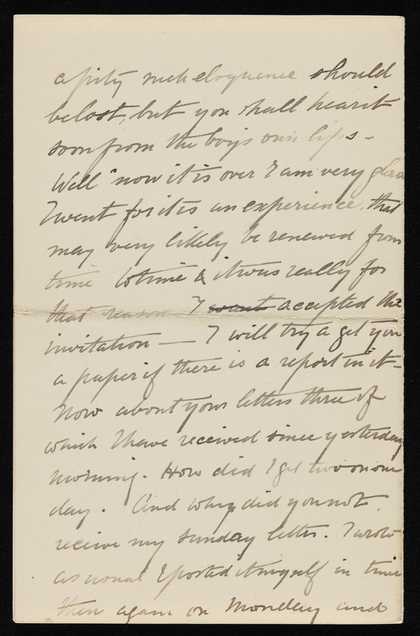 a pity such eloquence should
be lost, but you shall hear it
soon from the boys own lips -
Well now it is over I am very glad
I went for it is an experience that
may very likely be renewed from
time to time & it was really for
that reason I went accepted the
invitation — I will try & get you
a paper if there is a report in it -
Now about your letters three of
which I have received since yesterday
morning. How did I get two on one
day. And why did you not
receive my Sunday letter. I wrote
as usual & posted it myself in time
then again on Monday and